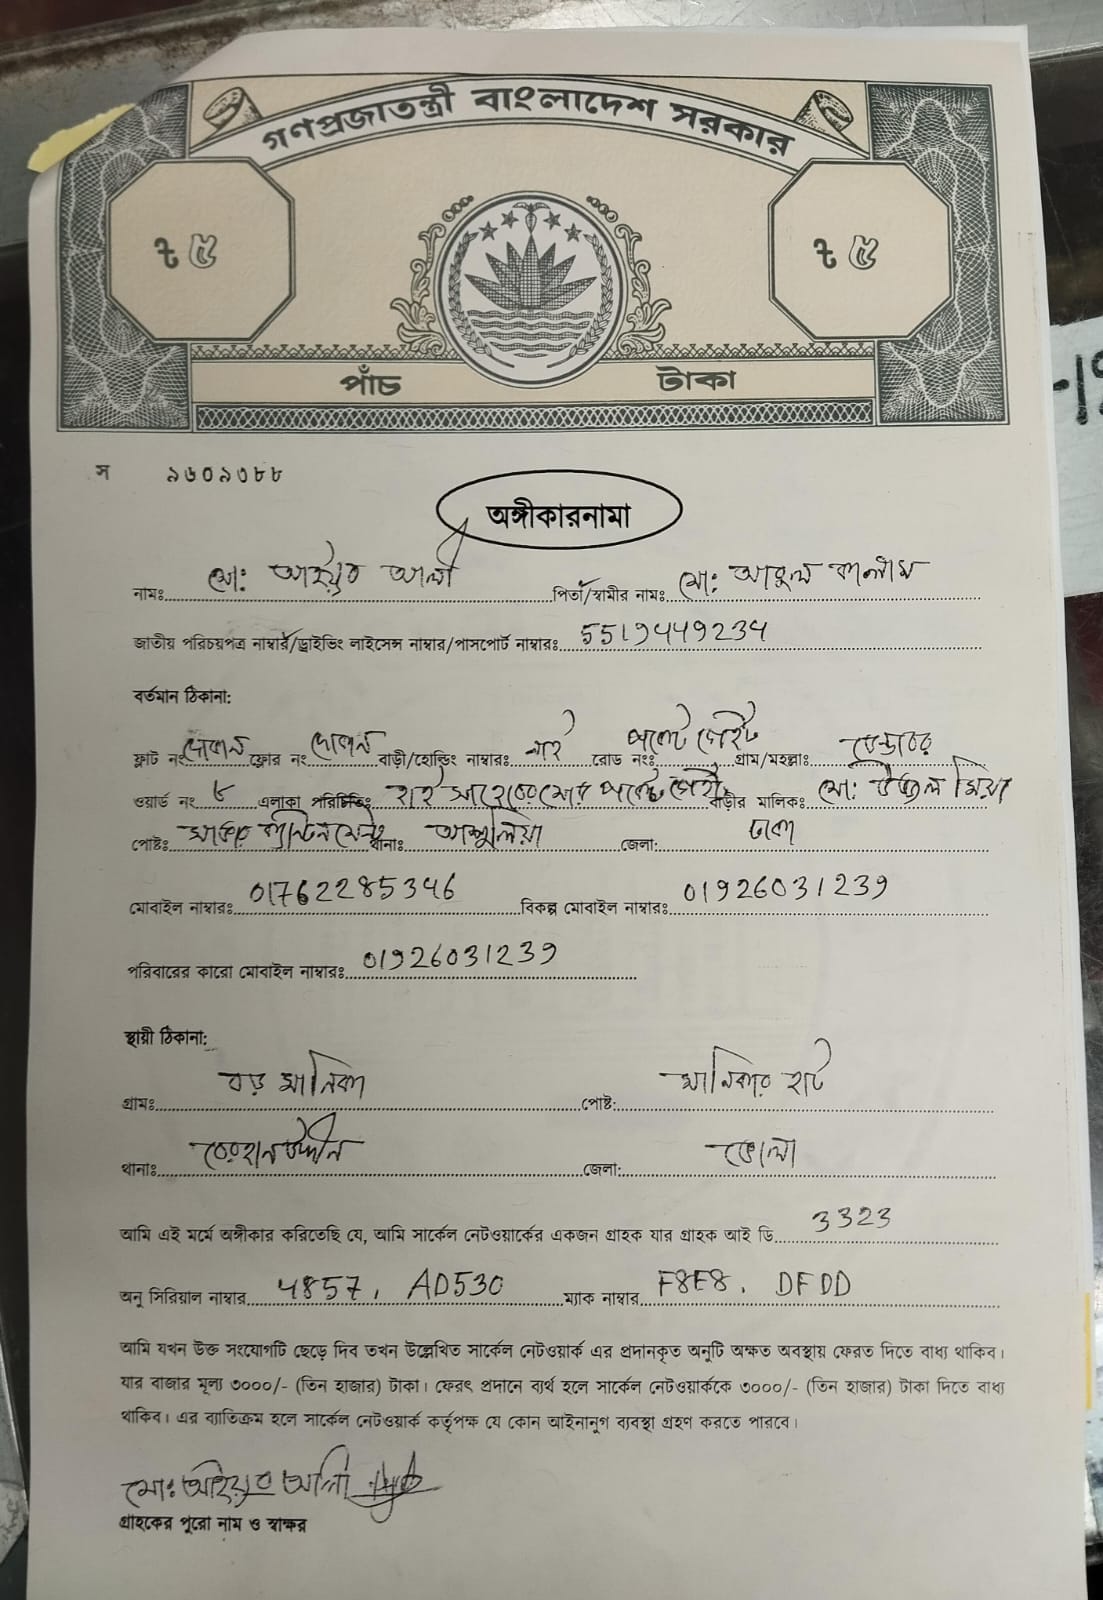 গণপ্রজাতন্ত্রী বাংলাদেশ সরকার
৳ ৫ ৳ ৫
পাঁচ টাকা
স ৯৬০৯৩৮৮
অঙ্গীকারনামা
নামঃ মো: আইয়ুব আলী পিতা/স্বামীর নামঃ মো: আবুল কালাম
জাতীয় পরিচয়পত্র নাম্বার/ড্রাইভিং লাইসেন্স নাম্বার/পাসপোর্ট নাম্বারঃ 5519449234
বর্তমান ঠিকানা:
ফ্লাট নংঃ দোকান ফ্লোর নং দোকান বাড়ী/হোল্ডিং নাম্বারঃ নাই রোড নংঃ পকেট গেইট গ্রাম/মহল্লাঃ
ওয়ার্ড নং ৮ এলাকা পরিচিতিঃ পকেট গেইট বাড়ীর মালিকঃ মো: মিয়া
পোষ্টঃ সাভার ক্যান্টনমেন্ট থানাঃ আশুলিয়া জেলা: ঢাকা
মোবাইল নাম্বারঃ 01762285346 বিকল্প মোবাইল নাম্বারঃ 01926031239
পরিবারের কারো মোবাইল নাম্বারঃ 01926031239
স্থায়ী ঠিকানা:
গ্রামঃ বড় মানিকা পোষ্ট: মানিকার হাট
থানাঃ বোরহানউদ্দীন জেলা: ভোলা
আমি এই মর্মে অঙ্গীকার করিতেছি যে, আমি সার্কেল নেটওয়ার্কের একজন গ্রাহক যার গ্রাহক আই ডি 3323
অনু সিরিয়াল নাম্বার 4857, AD530 ম্যাক নাম্বার F8E8. DFDD
আমি যখন উক্ত সংযোগটি ছেড়ে দিব তখন উল্লেখিত সার্কেল নেটওয়ার্ক এর প্রদানকৃত অনুটি অক্ষত অবস্থায় ফেরত দিতে বাধ্য থাকিব।
যার বাজার মূল্য ৩০০০/- (তিন হাজার) টাকা। ফেরৎ প্রদানে ব্যর্থ হলে সার্কেল নেটওয়ার্ককে ৩০০০/- (তিন হাজার) টাকা দিতে বাধ্য
থাকিব। এর ব্যতিক্রম হলে সার্কেল নেটওয়ার্ক কর্তৃপক্ষ যে কোন আইনানুগ ব্যবস্থা গ্রহণ করতে পারবে।
মো: আইয়ুব আলী
গ্রাহকের পুরো নাম ও স্বাক্ষর